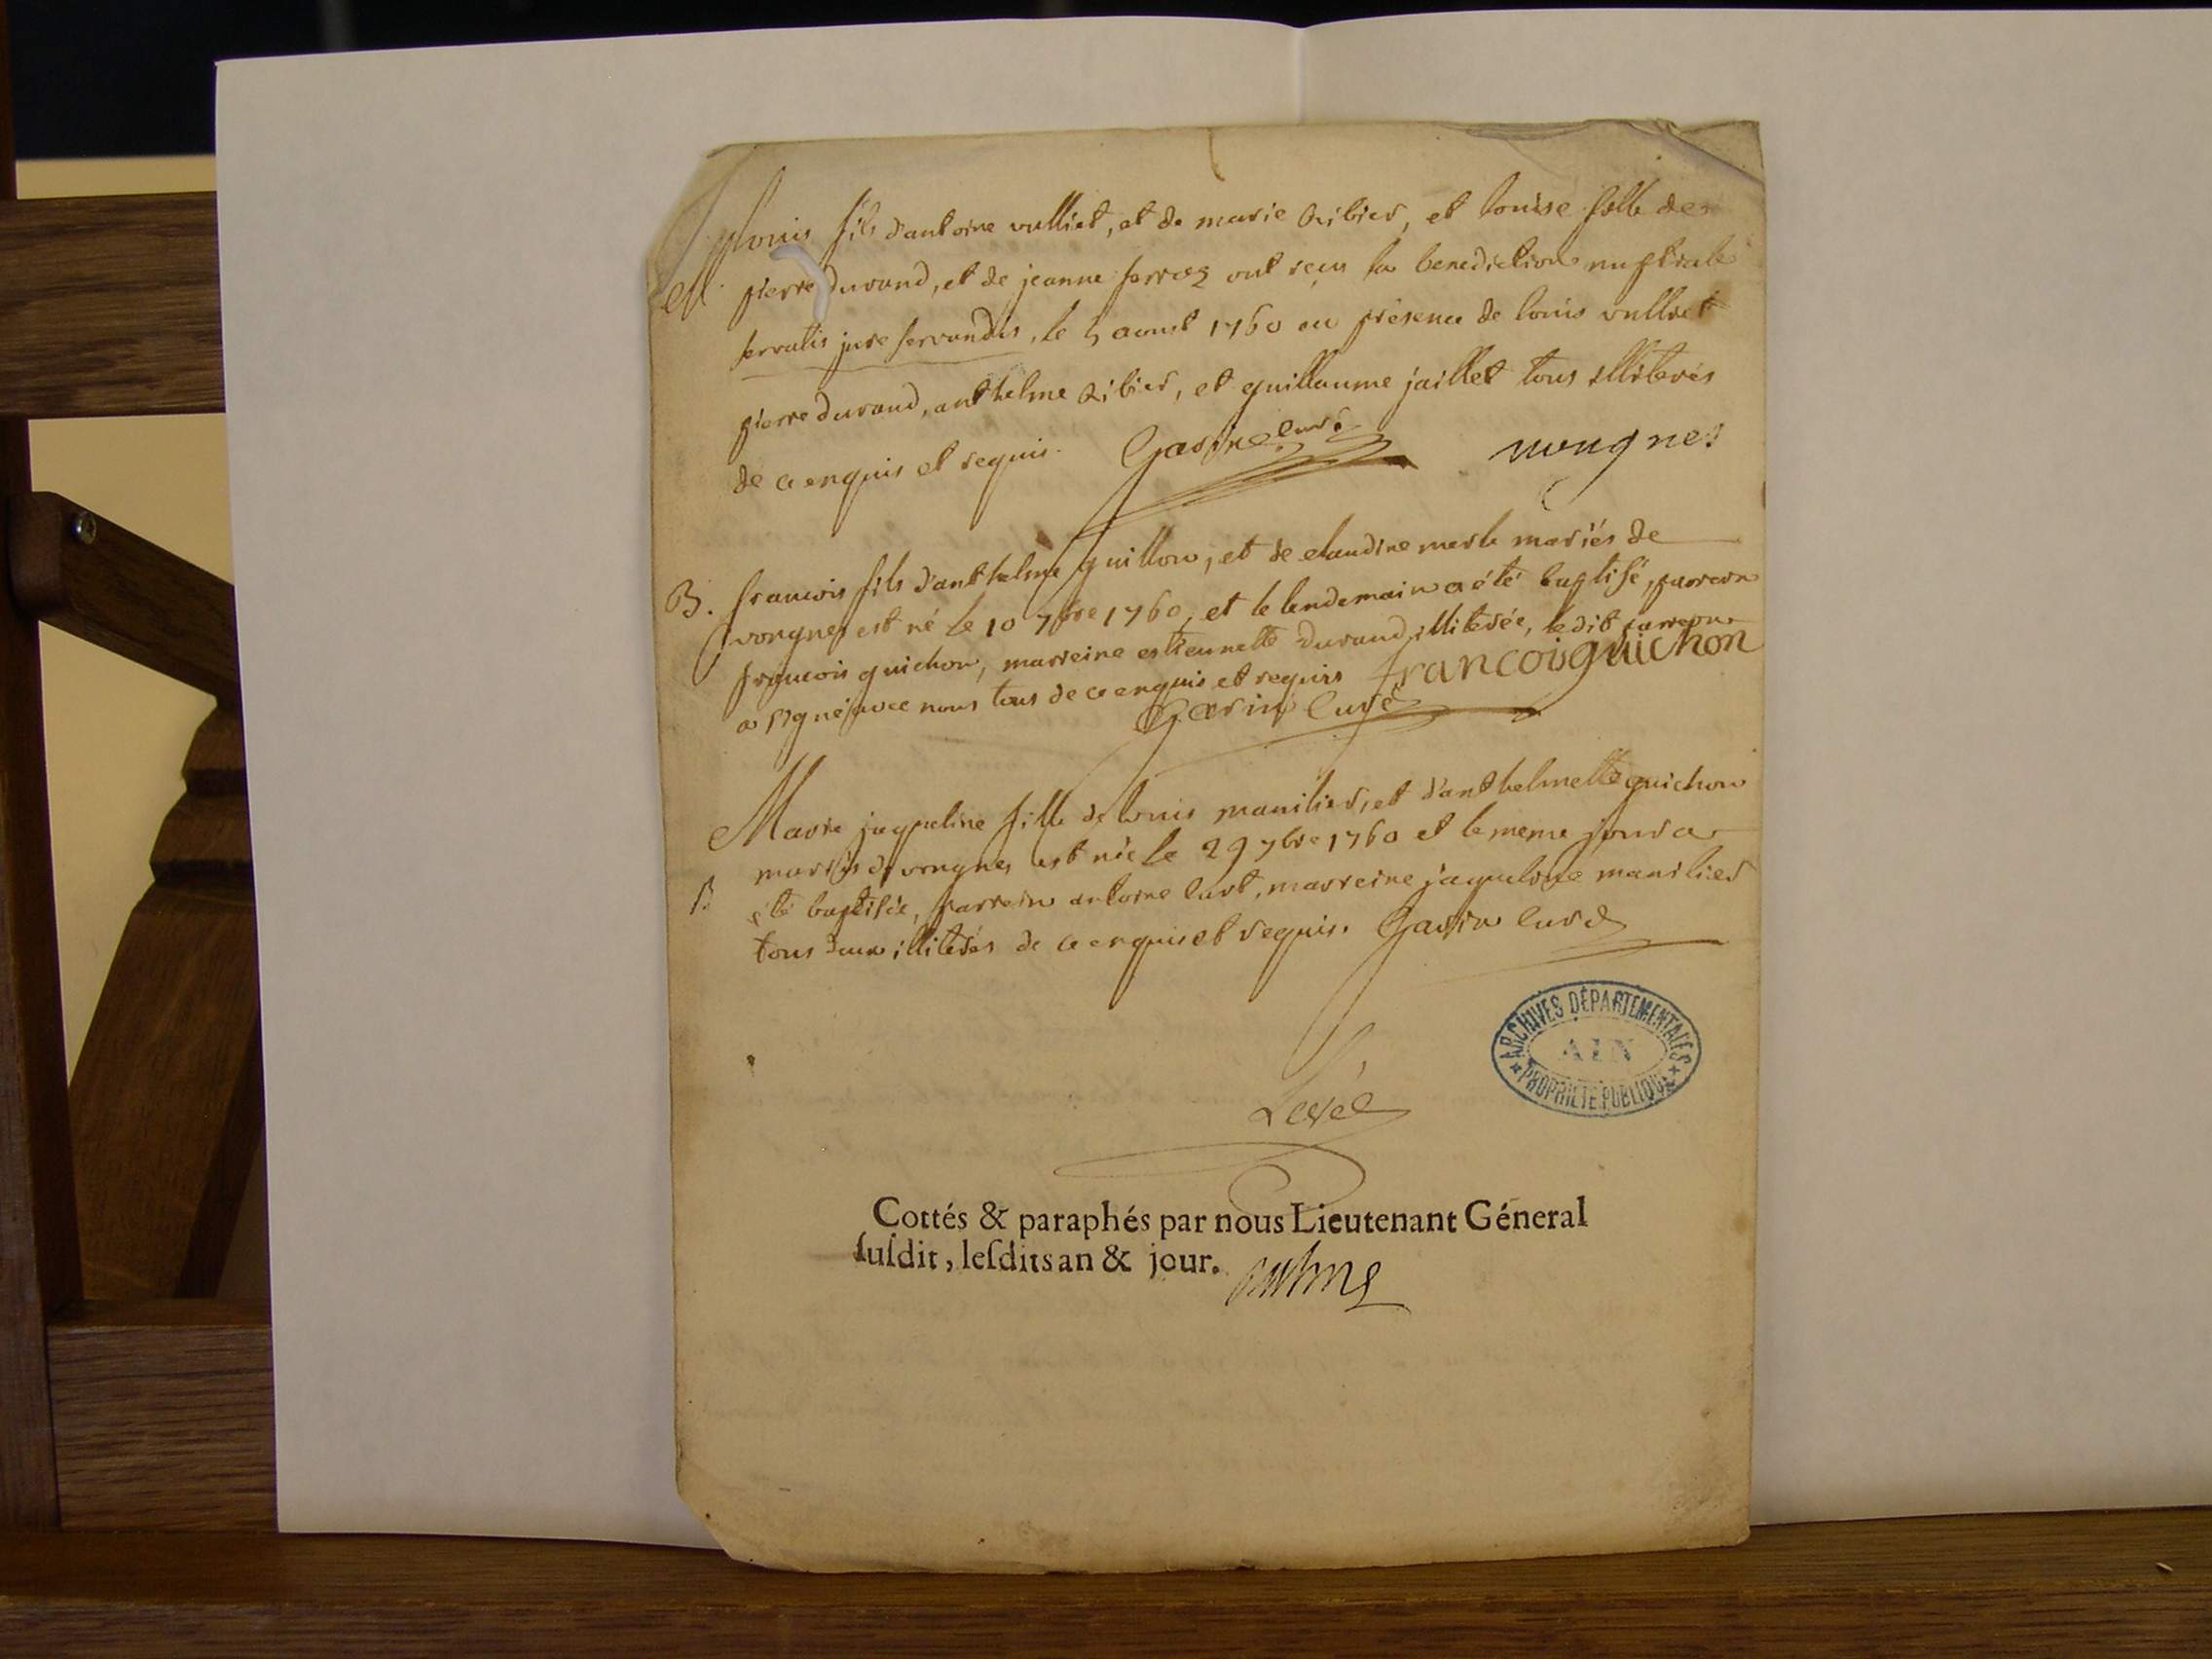 louis fils d'antoine vulliet, et de marie Ribier, et louise fille de
M. pierre durand, et de jeanne ferroz ont reçu la benediction nuptiale
servatis jure servandis, le 5 aoust 1760 en présence de louis vulliet
pierre durand, anthelme Ribier, et guillaume jaillet tous illiterés
de ce enquis et requis. Garin curé
vongnes
B. francois fils d'anthelme guillon, et de claudine merle mariés de
vongnes est né le 10 7bre 1760, et le lendemain a été baptisé, parrein
francois guichon, marreine estiennette durand illiterée, le dit parrein
a signé avec nous tous de ce enquis et requis francois guichon
Garin curé
Marie jaqueline fille de louis manilier, et d'anthelmette guichon
mariés de vongnes est née le 29 7bre 1760 et le meme jour a
B été baptisée, parrein antoine curt, marreine jaqueline manilier
tous deux illiterés de ce enquis et requis. Garin curé
ARCHIVES DÉPARTEMENTALES
AIN
PROPRIÉTÉ PUBLIQUE
Cottés & paraphés par nous Lieutenant Géneral
ſuſdit, leſdits an & jour.